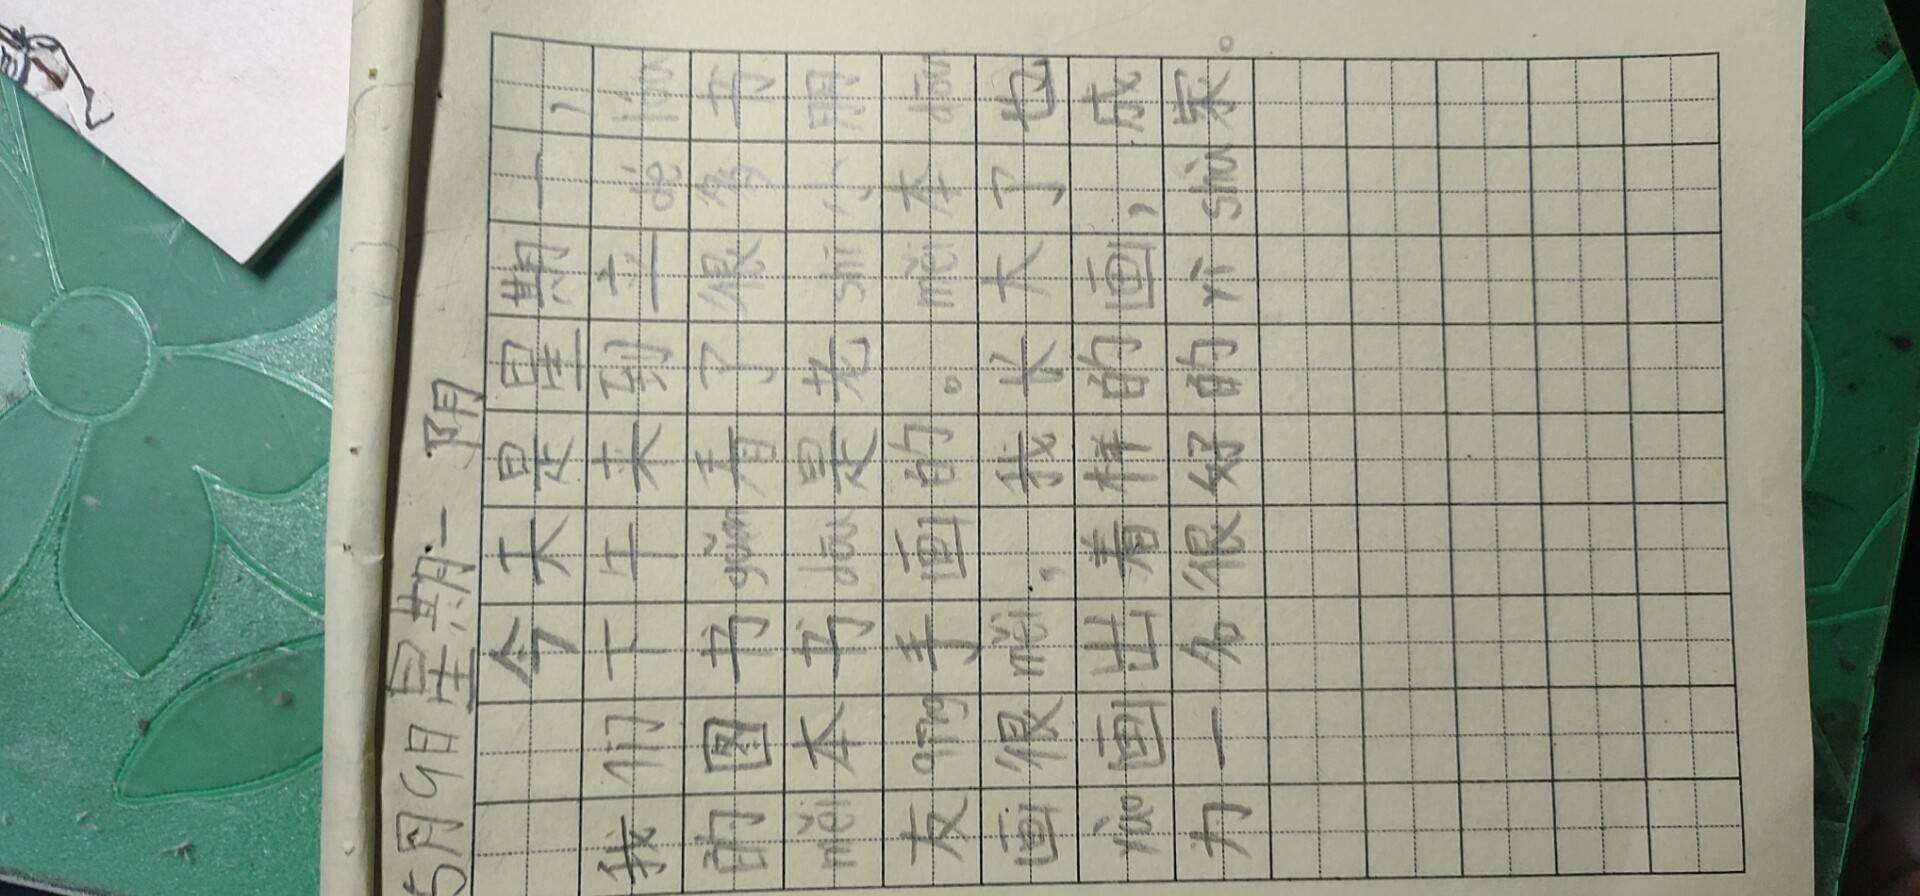 5月9日星期一 阴
今天是星期一，
我们下午来到立dé lóu
的图书guǎn看了很多书
měi本书dōu是老shī小朋
友qīng手画的。měi本dōu
画很měi，我长大了也
yào画出着样的画，成
为一个很好的yì shù家。